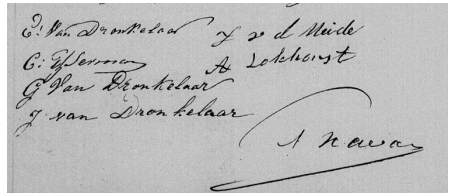 E: Van Dronkelaar
J v d Meide
C: IJserman
A Lokhorst
G Van Dronkelaar
J van Dronkelaar